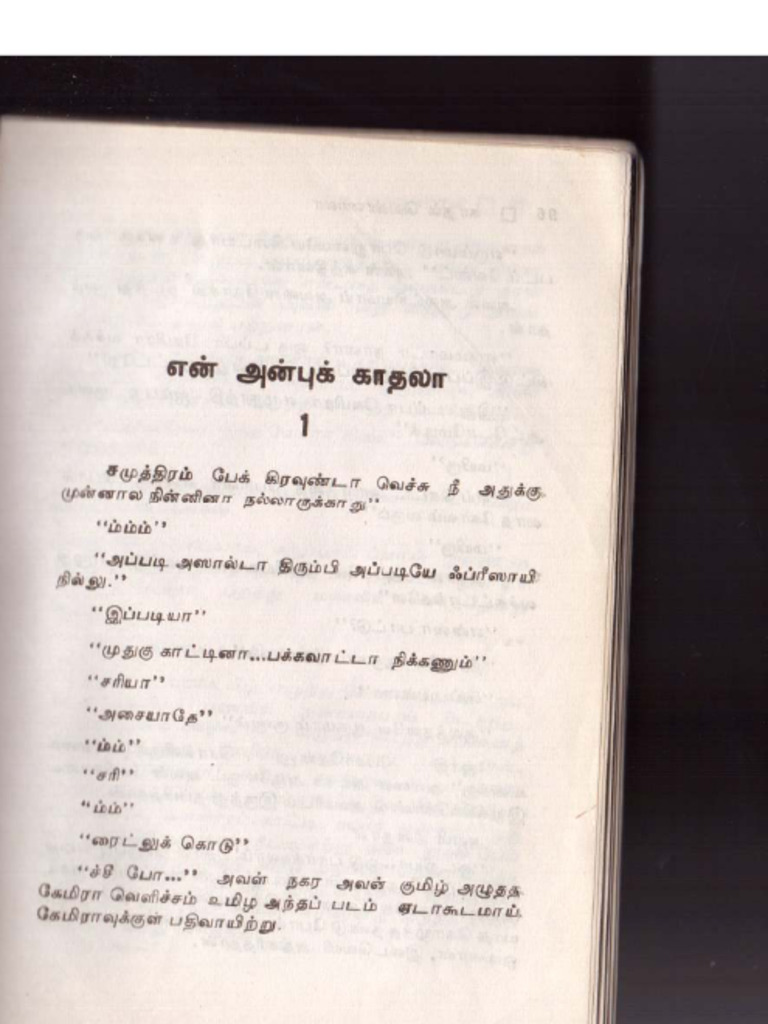 என் அன்புக் காதலா
1
சமுத்திரம் பேக் கிரவுண்டா வெச்சு நீ அதுக்கு
முன்னால நின்னினா நல்லாருக்காது''
''ம்ம்ம்''
''அப்படி அஸால்டா திரும்பி அப்படியே ஃப்ரீஸாயி
நில்லு.''
''இப்படியா''
''முதுகு காட்டினா...பக்கவாட்டா நிக்கணும்''
''சரியா''
''அசையாதே''
''ம்ம்''
''சரி''
''ம்ம்''
''ரைட்லுக் கொடு''
''ச்சீ போ...'' அவள் நகர அவன் குமிழ் அழுத்த
கேமிரா வெளிச்சம் உமிழ அந்தப் படம் ஏடாகூடமாய்
கேமிராவுக்குள் பதிவாயிற்று.